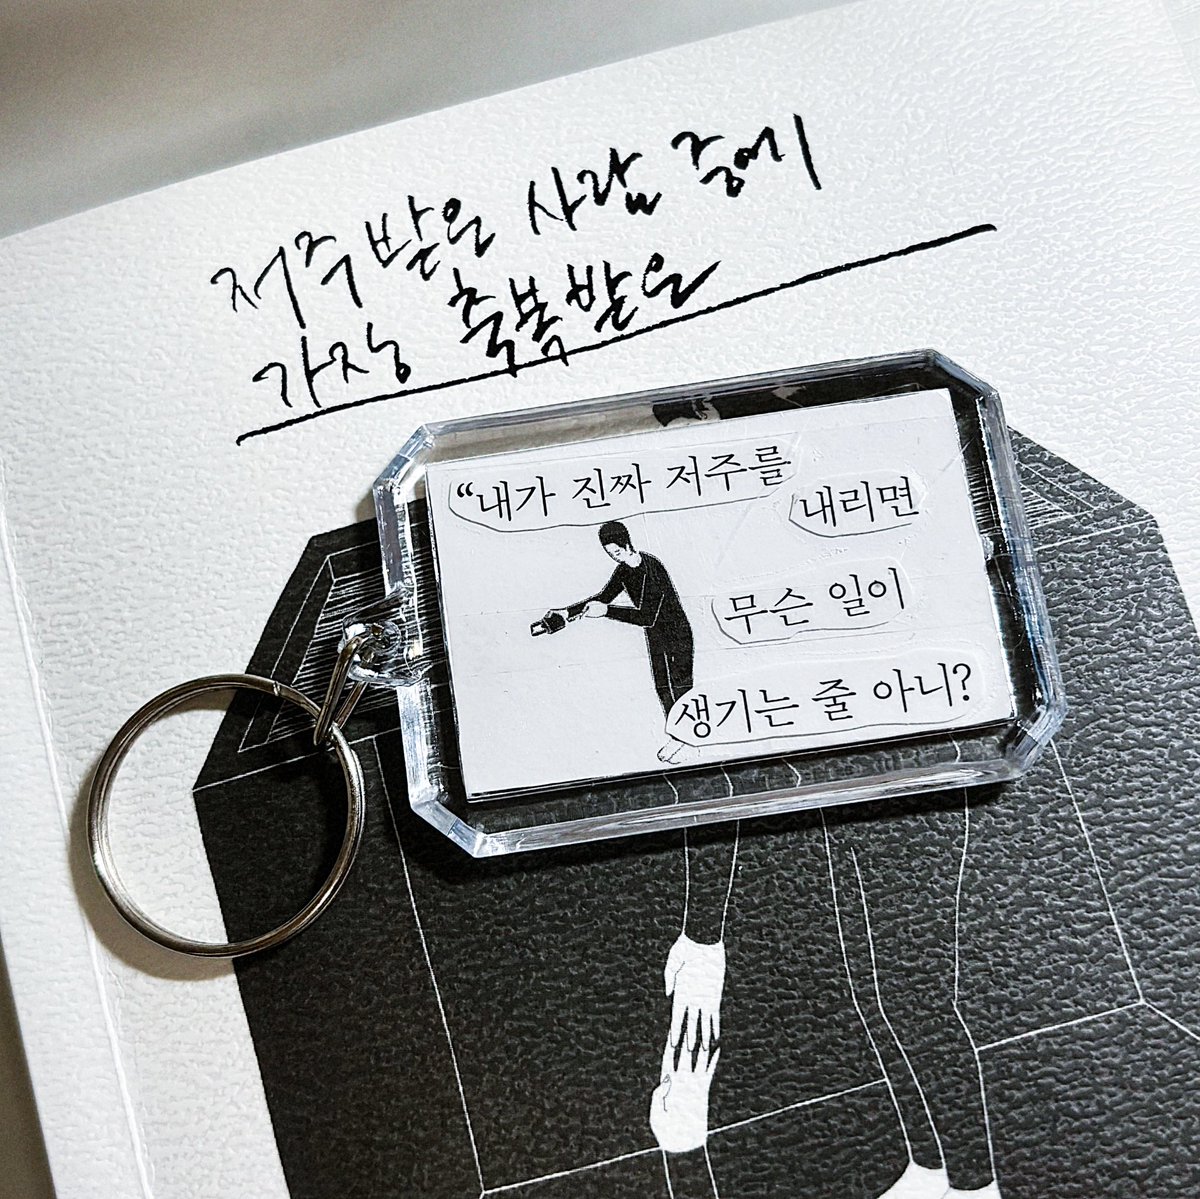 저주 받은 사람 중에
가장 축복받은
“내가 진짜 저주를
내리면
무슨 일이
생기는 줄 아니?